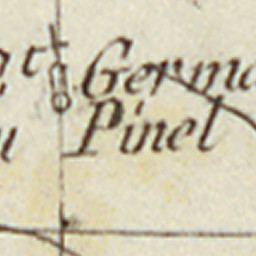 t Germa
Pinel